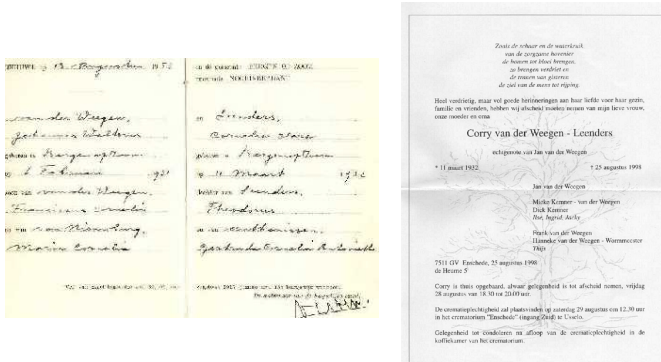 12 1952
van der Weegen,
Johannes
Bergen op Zoom
6 Februari 1931
van der Weegen,
Franciscus Cornelis
Maria Cornelia
in de gemeente BERGEN OP ZOOM
NOORD-BRABANT
en Leenders,
Cornelia
Bergen op Zoom
11 Maart 1932
Leenders,
Theodorus
Gertruda Cornelia
Zoals de schaar en de waterkruik
van de zorgzame hovenier
de bomen tot bloei brengen,
zo brengen verdriet en
de tranen van gisteren
de ziel van de mens tot rijping.
Heel verdrietig, maar vol goede herinneringen aan haar liefde voor haar gezin,
familie en vrienden, hebben wij afscheid moeten nemen van mijn lieve vrouw,
onze moeder en oma
Corry van der Weegen - Leenders
echtgenote van Jan van der Weegen
* 11 maart 1932 † 25 augustus 1998
Jan van der Weegen
Mieke Kemner - van der Weegen
Dick Kemner
Ilse, Ingrid,
Frank van der Weegen
Hanneke van der Weegen - Wormmeester
Thijs
7511 GV Enschede, 25 augustus 1998
de Heurne 5
Corry is thuis opgebaard, alwaar gelegenheid is tot afscheid nemen, vrijdag
28 augustus van 18.30 tot 20.00 uur.
De crematieplechtigheid zal plaatsvinden op zaterdag 29 augustus om 12.30 uur
in het crematorium "Enschede" (ingang Zuid) te Usselo.
Gelegenheid tot condoleren na afloop van de crematieplechtigheid in de
koffiekamer van het crematorium.